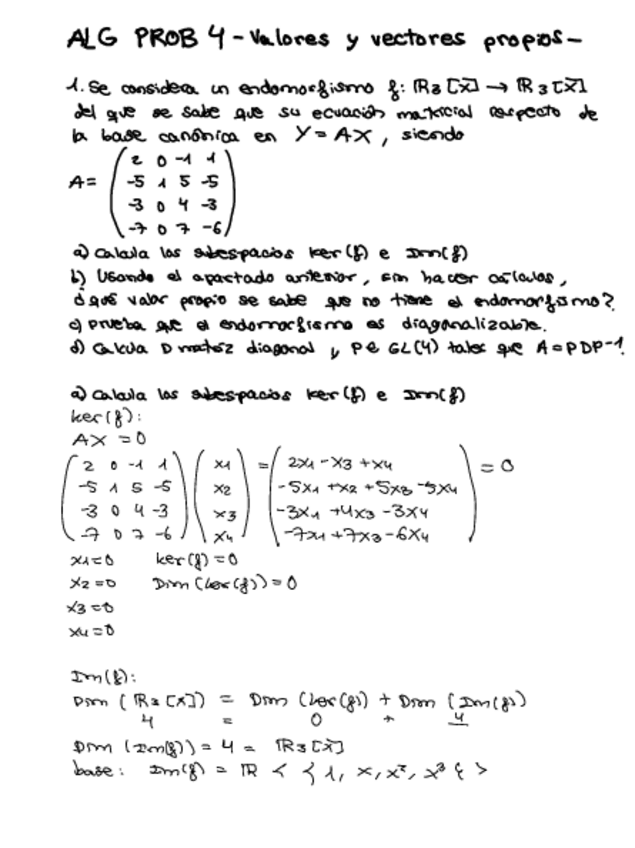 ALG PROB 4 - Valores y vectores propios -
1. Se considera un endomorfismo f: R3[x] → R3[x]
del que se sabe que su ecuación matricial respecto de
la base canónica en Y = AX, siendo
A = ( 2 0 -1 1
-5 1 5 -5
-3 0 4 -3
-7 0 7 -6 )
a) Calcula los subespacios ker(f) e Im(f)
b) Usando el apartado anterior, sin hacer cálculos,
¿qué valor propio se sabe que no tiene el endomorfismo?
c) Prueba que el endomorfismo es diagonalizable.
d) Calcula D matriz diagonal y P ∈ GL(4) tales que A = PDP⁻¹.
a) Calcula los subespacios ker(f) e Im(f)
ker(f):
AX = 0
( 2 0 -1 1 ) ( x1 ) = ( 2x1 - x3 + x4 ) = 0
-5 1 5 -5 x2 -5x1 + x2 + 5x3 - 5x4
-3 0 4 -3 x3 -3x1 + 4x3 - 3x4
-7 0 7 -6 x4 -7x1 + 7x3 - 6x4
x1 = 0 ker(f) = 0
x2 = 0 Dim(ker(f)) = 0
x3 = 0
x4 = 0
Im(f):
Dim (R3[x]) = Dim (ker(f)) + Dim (Im(f))
4 = 0 + 4
Dim (Im(f)) = 4 = R3[x]
base: Im(f) = R < { 1, x, x², x³ } >